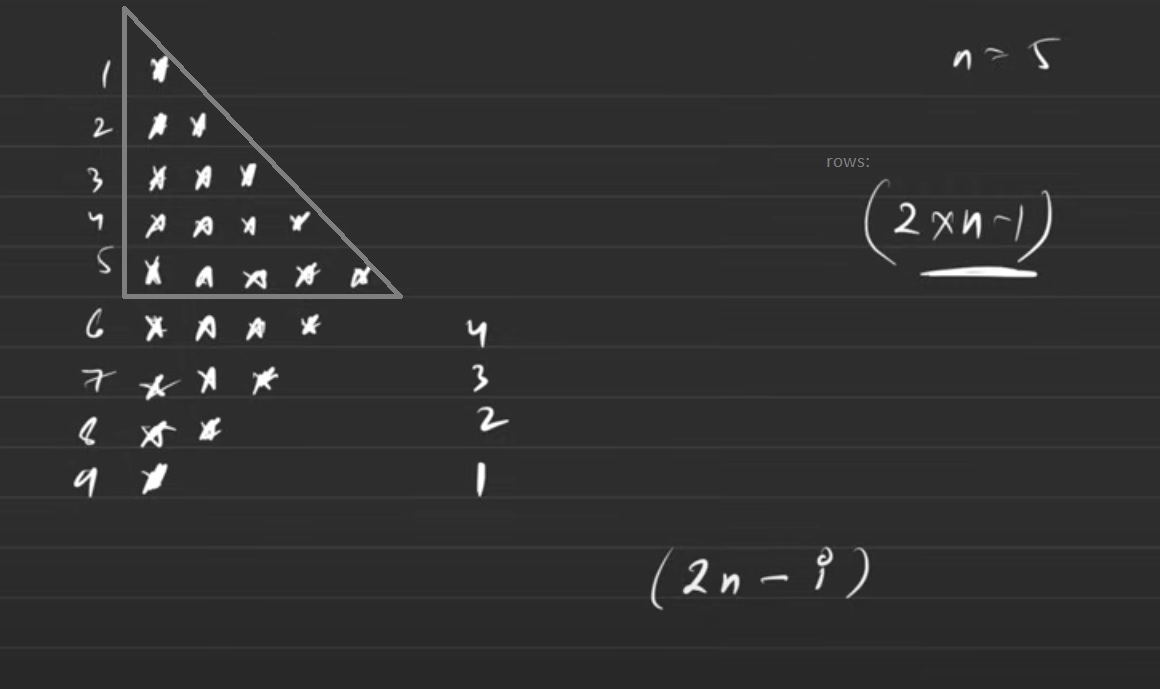 n = 5
1 *
2 * *
3 * * *
4 * * * *
5 * * * * *
6 * * * * 4
7 * * * 3
8 * * 2
9 * 1
rows:
(2 x n - 1)
(2n - i)